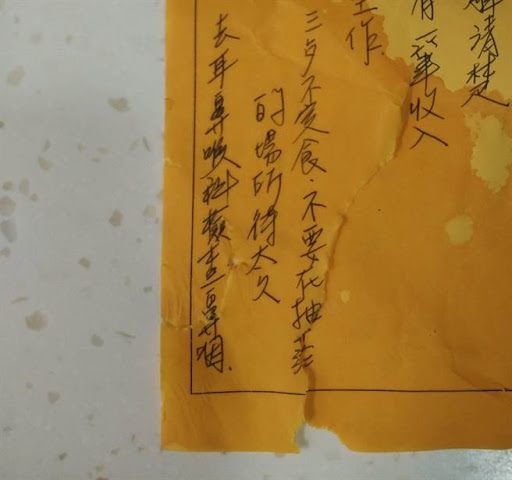 解清楚
有筆收入
工作
三歺不定食.不要在抽菸
的場所待太久
去耳鼻喉科檢查鼻咽.